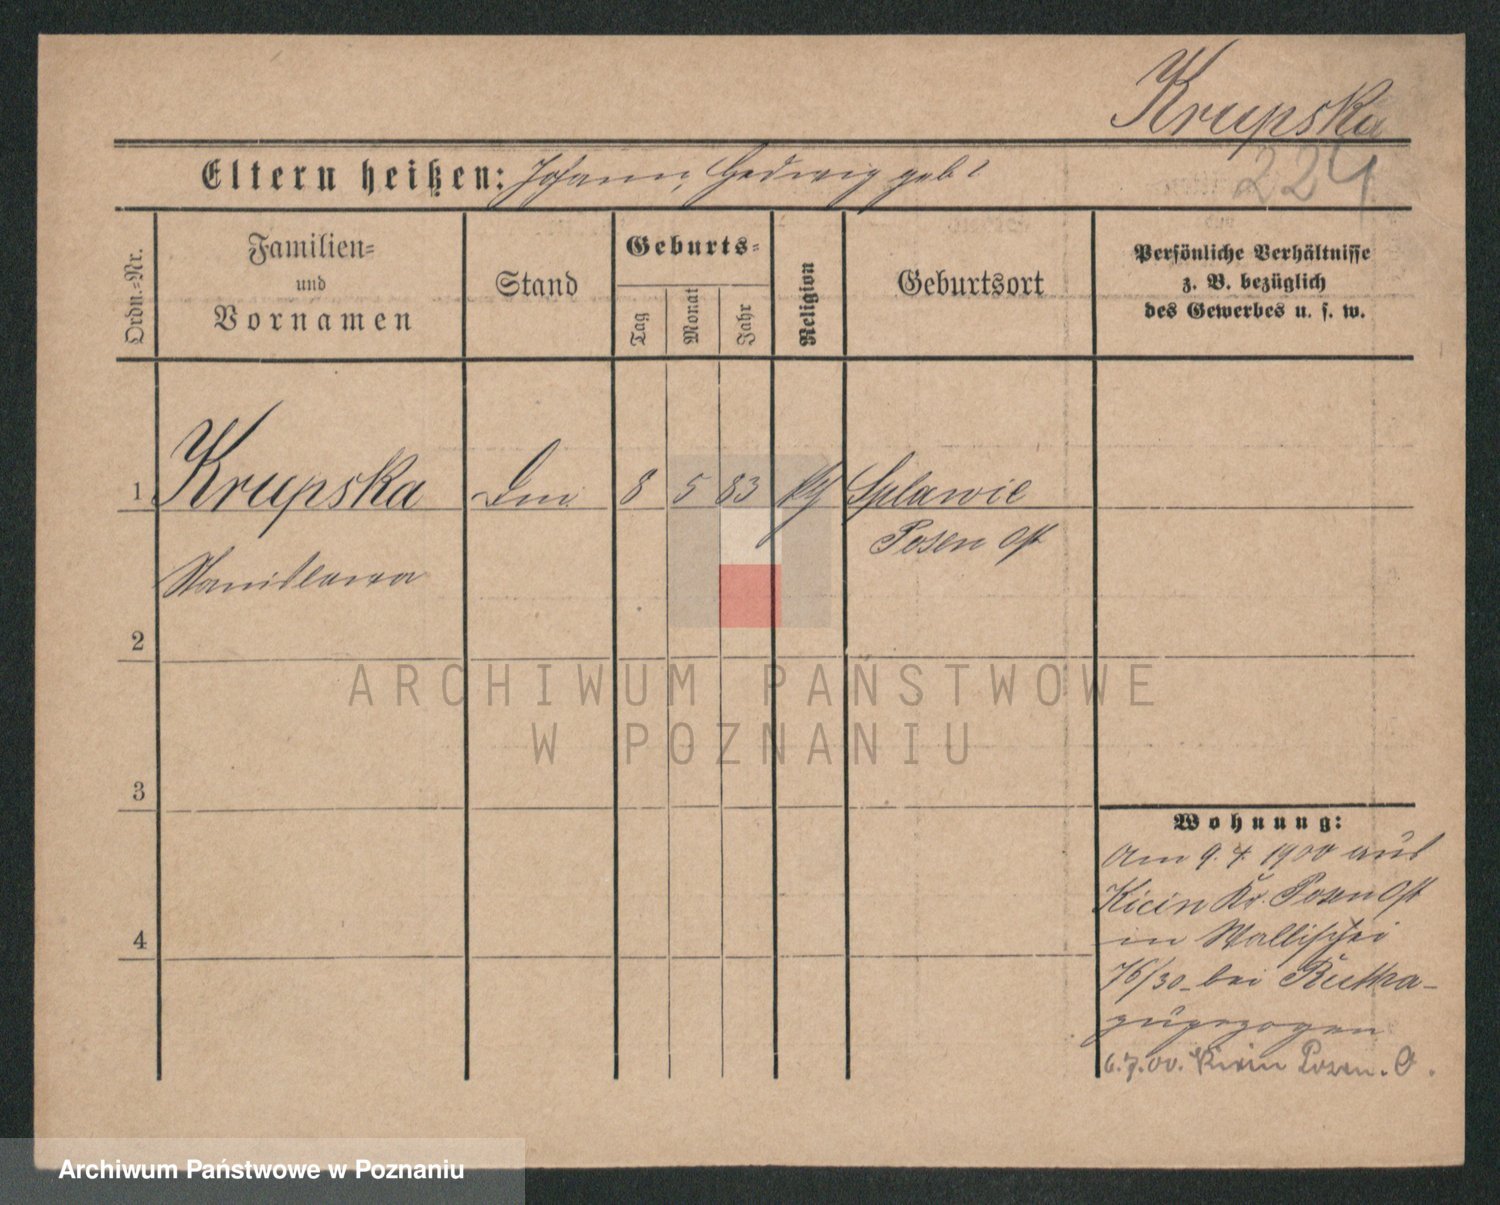 Krupska
224
Eltern heißen: Johann, Hedwig geb:
Ordn.-Nr.
Familien-
und
Vornamen
Stand
Geburts-
Tag
Monat
Jahr
Religion
Geburtsort
Persönliche Verhältnisse
z. B. bezüglich
des Gewerbes u. s. w.
1 Krupska 8 5 83 Splawie
Posen Ost
Stanislawa
2
3
4
Wohnung:
Am 9. 4. 1900 aus
Kicin Kr. Posen Ost
in Wallischei
76/30 bei Rutha-
zugezogen
6.7.00. Kicin Posen. O.
ARCHIWUM PAŃSTWOWE
W POZNANIU
Archiwum Państwowe w Poznaniu